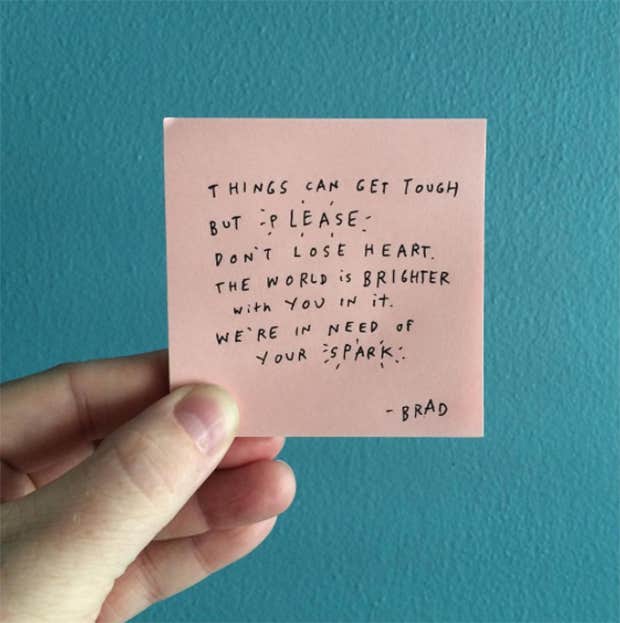 THINGS CAN GET TOUGH
BUT PLEASE
DON'T LOSE HEART.
THE WORLD is BRIGHTER
with YOU IN it.
WE'RE IN NEED OF
YOUR SPARK.
- BRAD